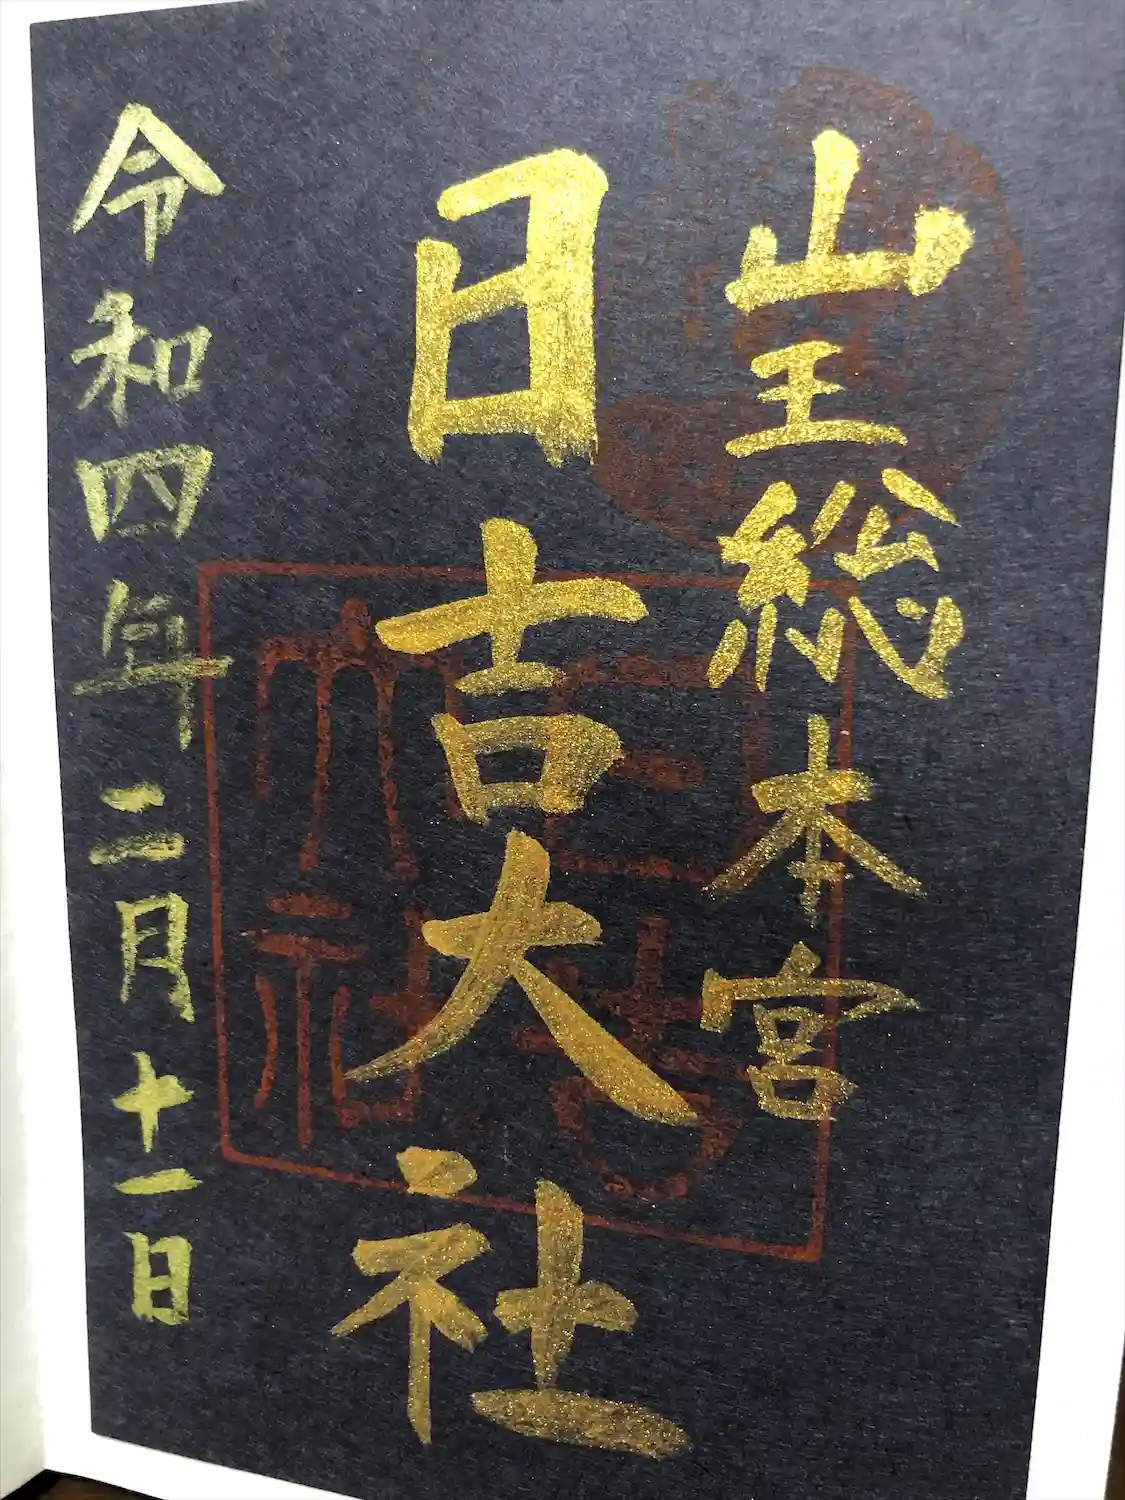 山王総本宮
日吉大社
令和四年二月十一日
日吉大社